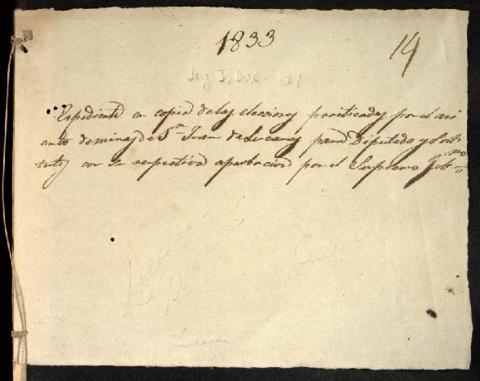 1833
14
Leg. 3, Doc. 191
Expediente en copia de las elecciones practicadas por el asi
ento de minas de Sn Juan de Lucanas para Diputado y Sosti
tutos con su respectiva aprobacion por el Supremo Gobno